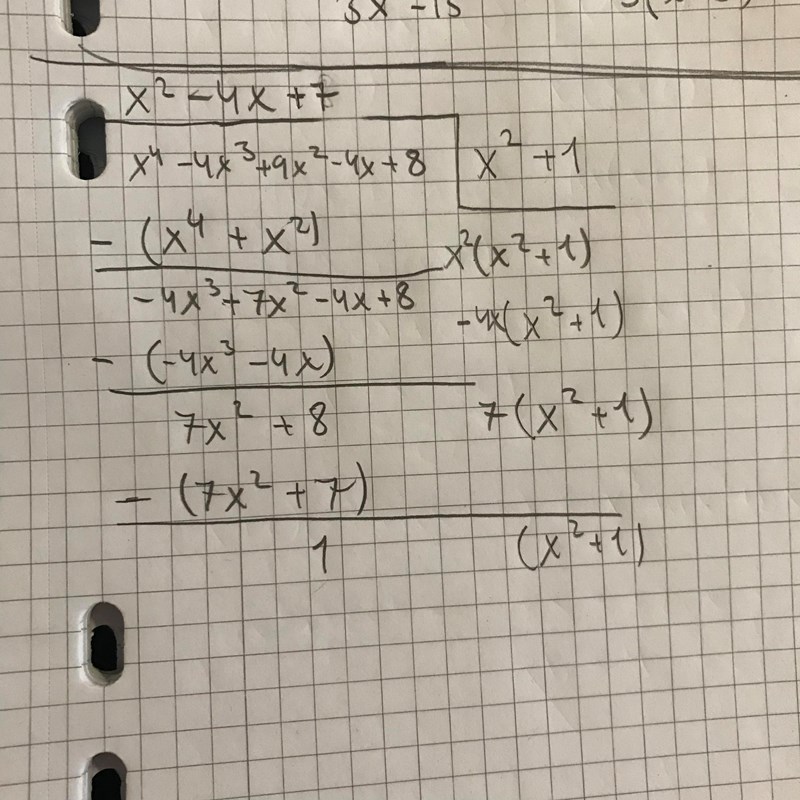 3x - 15
x² - 4x + 7
x⁴ - 4x³ + 9x² - 4x + 8 x² + 1
- (x⁴ + x²) x²(x² + 1)
-4x³ + 7x² - 4x + 8 -4x(x² + 1)
- (-4x³ - 4x)
7x² + 8 7(x² + 1)
- (7x² + 7)
1 (x² + 1)